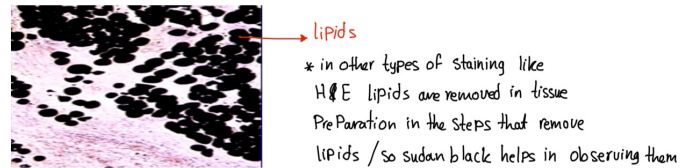 lipids
* in other types of staining like
H&E lipids are removed in tissue
Preparation in the steps that remove
lipids / so sudan black helps in observing them